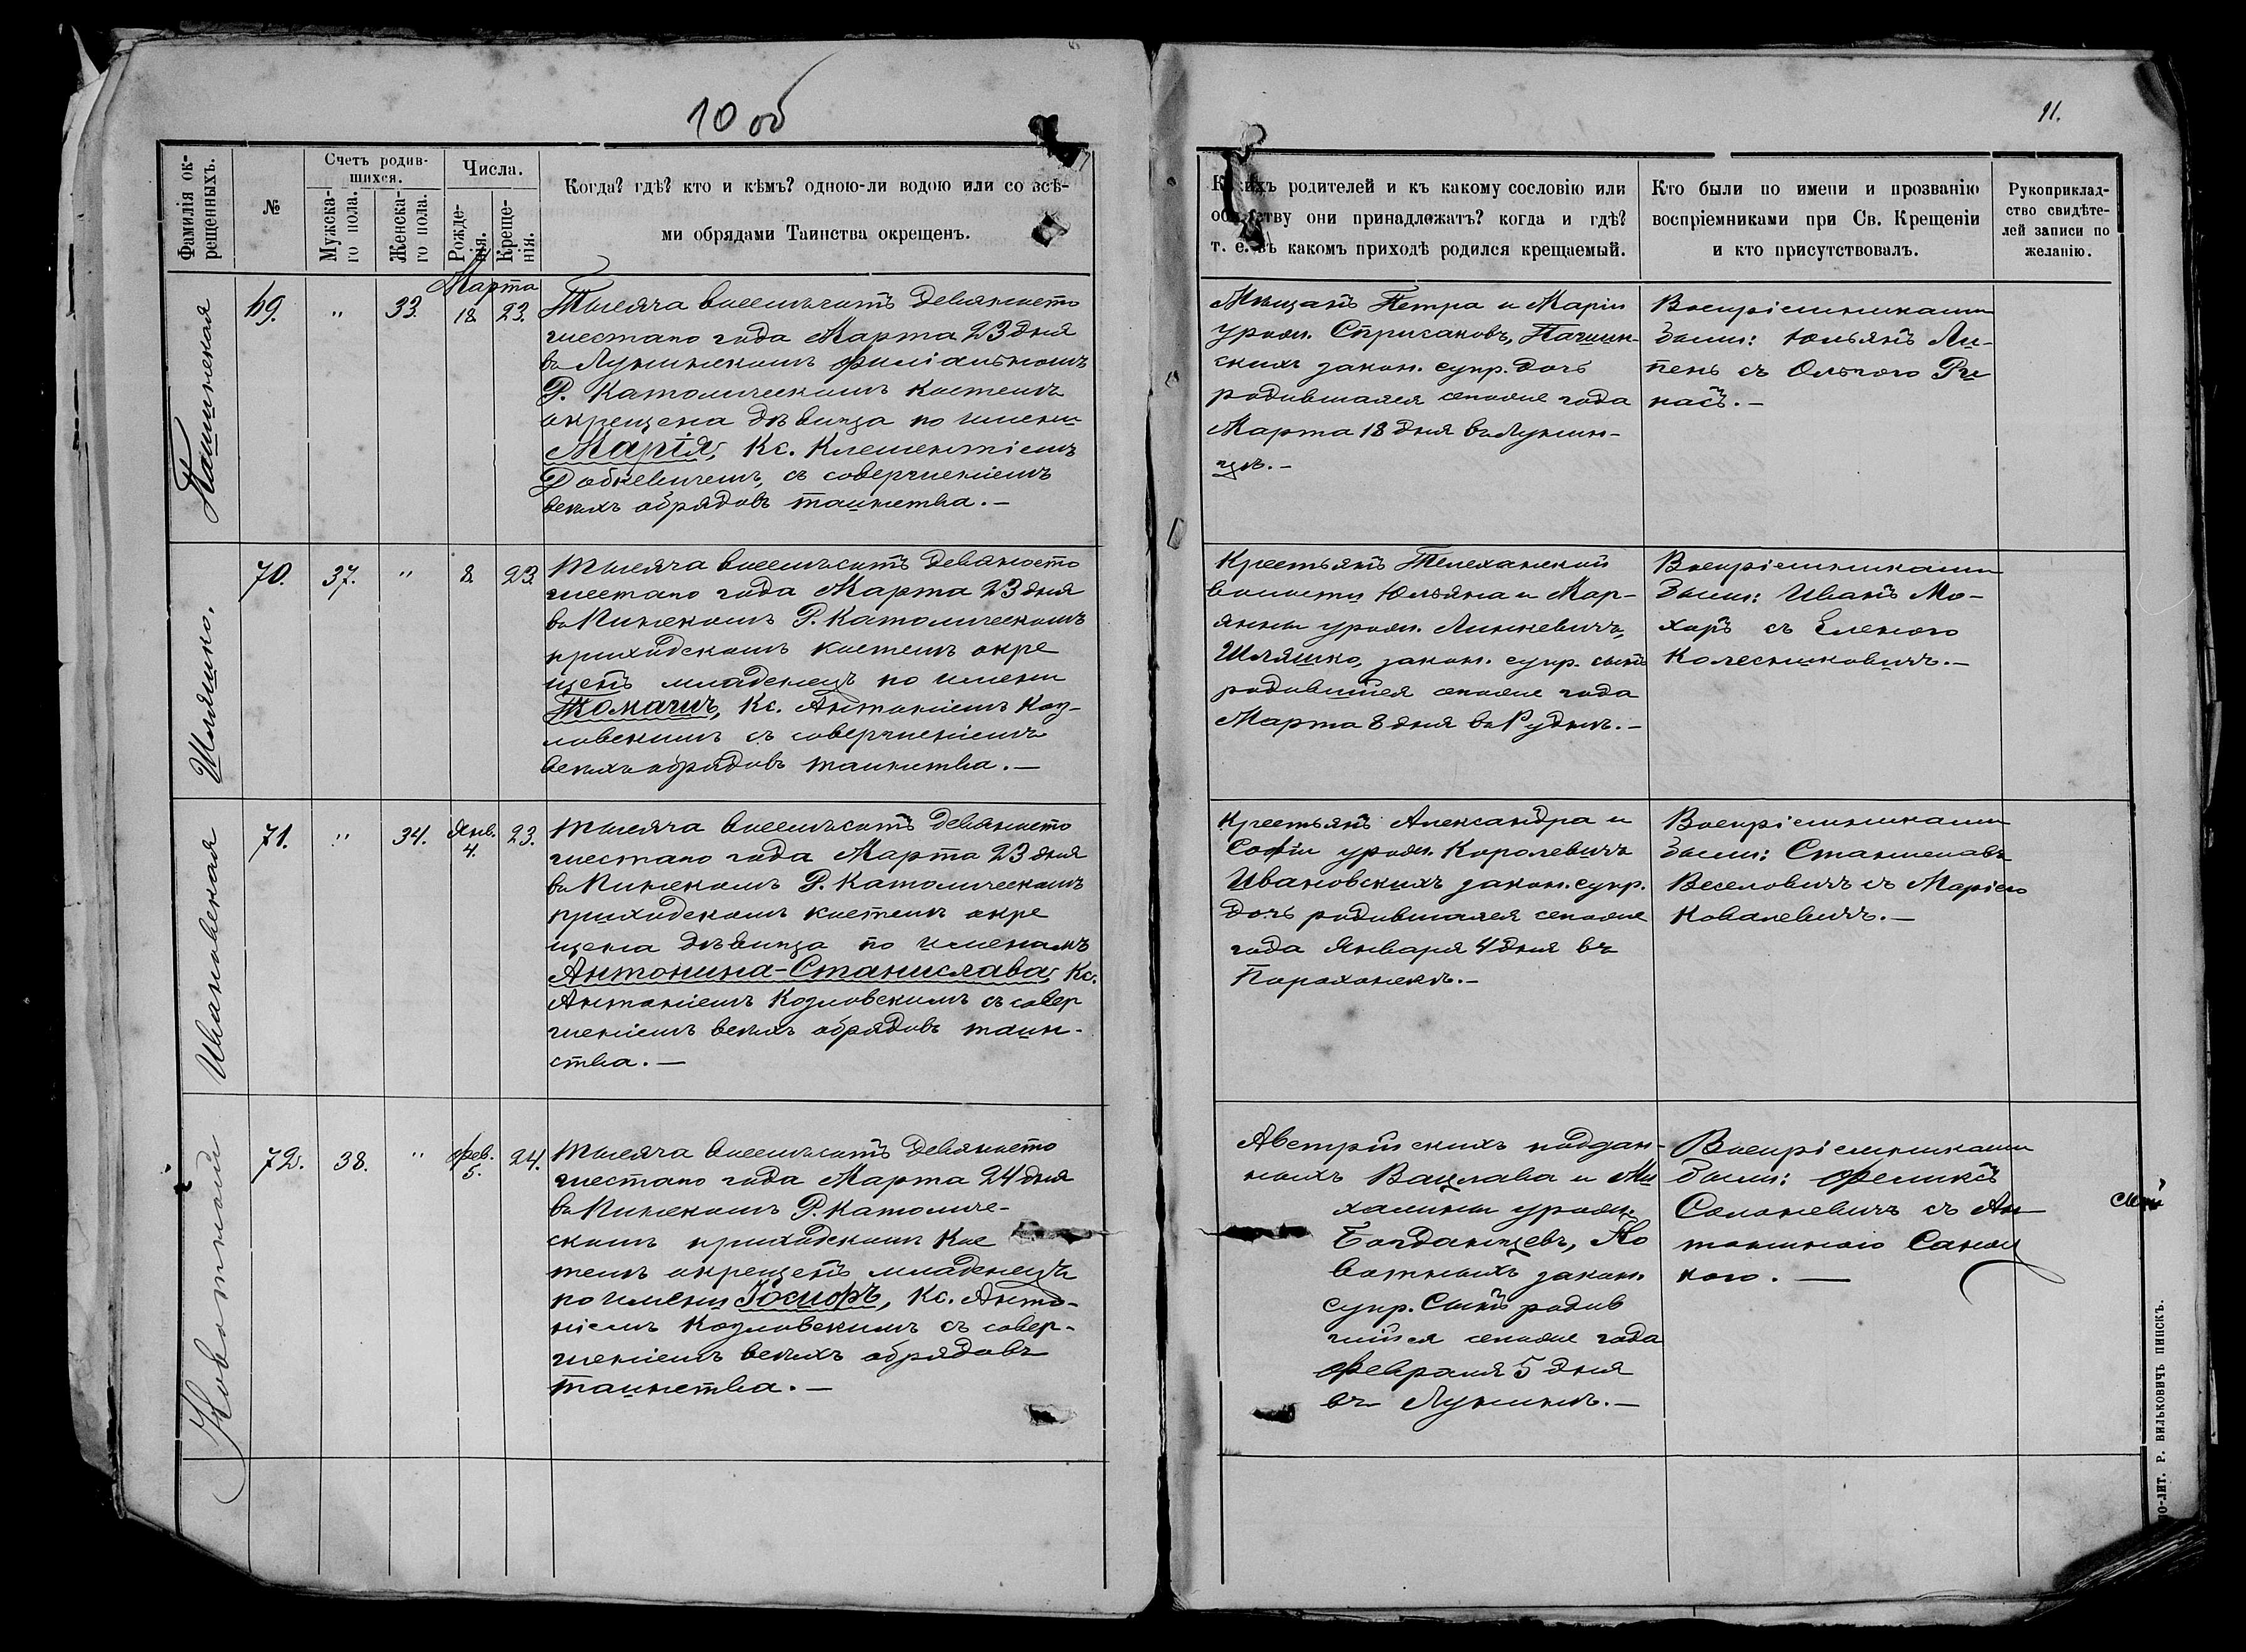 10 об
11.
Фамилія ок-
рещенныхъ.
№
Счетъ родив-
шихся.
Мужска-
го пола.
Женска-
го пола.
Числа.
Рожде-
нія.
Креще-
нія.
Когда? гдѣ? кто и кѣмъ? одною-ли водою или со всѣ-
ми обрядами Таинства окрещенъ.
Какихъ родителей и къ какому сословію или
обществу они принадлежатъ? когда и гдѣ?
т. е. въ какомъ приходѣ родился крещаемый.
Кто были по имени и прозванію
воспріемниками при Св. Крещеніи
и кто присутствовалъ.
Рукоприклад-
ство свидѣте-
лей записи по
желанію.
Пашинская
69.
"
33.
Марта
18.
23.
Тысяча восемьсотъ девяносто
шестаго года Марта 23 дня
въ Лунинскомъ филіальномъ
Р. Католическомъ костелѣ
окрещена дѣвица по имени
Марія, Кс. Клементіемъ
Добкевичемъ, съ совершеніемъ
всѣхъ обрядовъ таинства.—
Мѣщанъ Петра и Маріи
урожд. Сприсаковъ, Пашин-
скихъ закон. супр. дочь
родившаяся сего же года
Марта 18 дня въ Лунин-
цѣ.—
Воспріемниками
были: Юльянъ Ли-
пень съ
Шляшко.
70.
37.
"
8.
23.
Тысяча восемьсотъ девяносто
шестаго года Марта 23 дня
въ Пинскомъ Р. Католическомъ
приходскомъ костелѣ окре
щенъ младенецъ по имени
Томашъ, Кс. Антоніемъ Коз-
ловскимъ съ совершеніемъ
всѣхъ обрядовъ таинства.—
Крестьянъ Телеханской
волости Юльяна и Мар-
янны урожд. Линкевичъ,
Шляшко, закон. супр. сынъ
родившійся сего же года
Марта 8 дня въ Рудни.—
Воспріемниками
были: Иванъ Мо-
харъ съ Еленою
Колесниковичъ.—
Ивановская
71.
"
34.
Янв.
4.
23.
Тысяча восемьсотъ девяносто
шестаго года Марта 23 дня
въ Пинскомъ Р. Католическомъ
приходскомъ костелѣ окре
щена дѣвица по именамъ
Антонина-Станислава, Кс.
Антоніемъ Козловскимъ съ совер
шеніемъ всѣхъ обрядовъ таин-
ства.—
Крестьянъ Александра и
Софіи урожд. Королевичъ
Ивановскихъ закон. супр.
дочь родившаяся сего же
года Января 4 дня въ
Парахонскѣ.—
Воспріемниками
были: Станиславъ
Веселовичъ съ Маріею
Ковалевичъ.—
Новотний
72.
38.
"
Фев.
5.
24.
Тысяча восемьсотъ девяносто
шестаго года Марта 24 дня
въ Пинскомъ Р. Католиче-
скомъ приходскомъ Кос
телѣ окрещенъ младенецъ
по имени Іосифъ, Кс. Анто-
ніемъ Козловскимъ съ совер-
шеніемъ всѣхъ обрядовъ
таинства.—
Австрійскихъ поддан-
ныхъ Вацлава и Ми
халины урожд.
Богданцевъ, Но
вотныхъ закон.
супр. Сынъ родив
шійся сего же года
Февраля 5 дня
въ Лунинѣ.—
Воспріемниками
были: Феликсъ
Солоневичъ съ Ан
тониною
кою.—
Р. ВИЛЬКОВИЧЪ ПИНСКЪ.